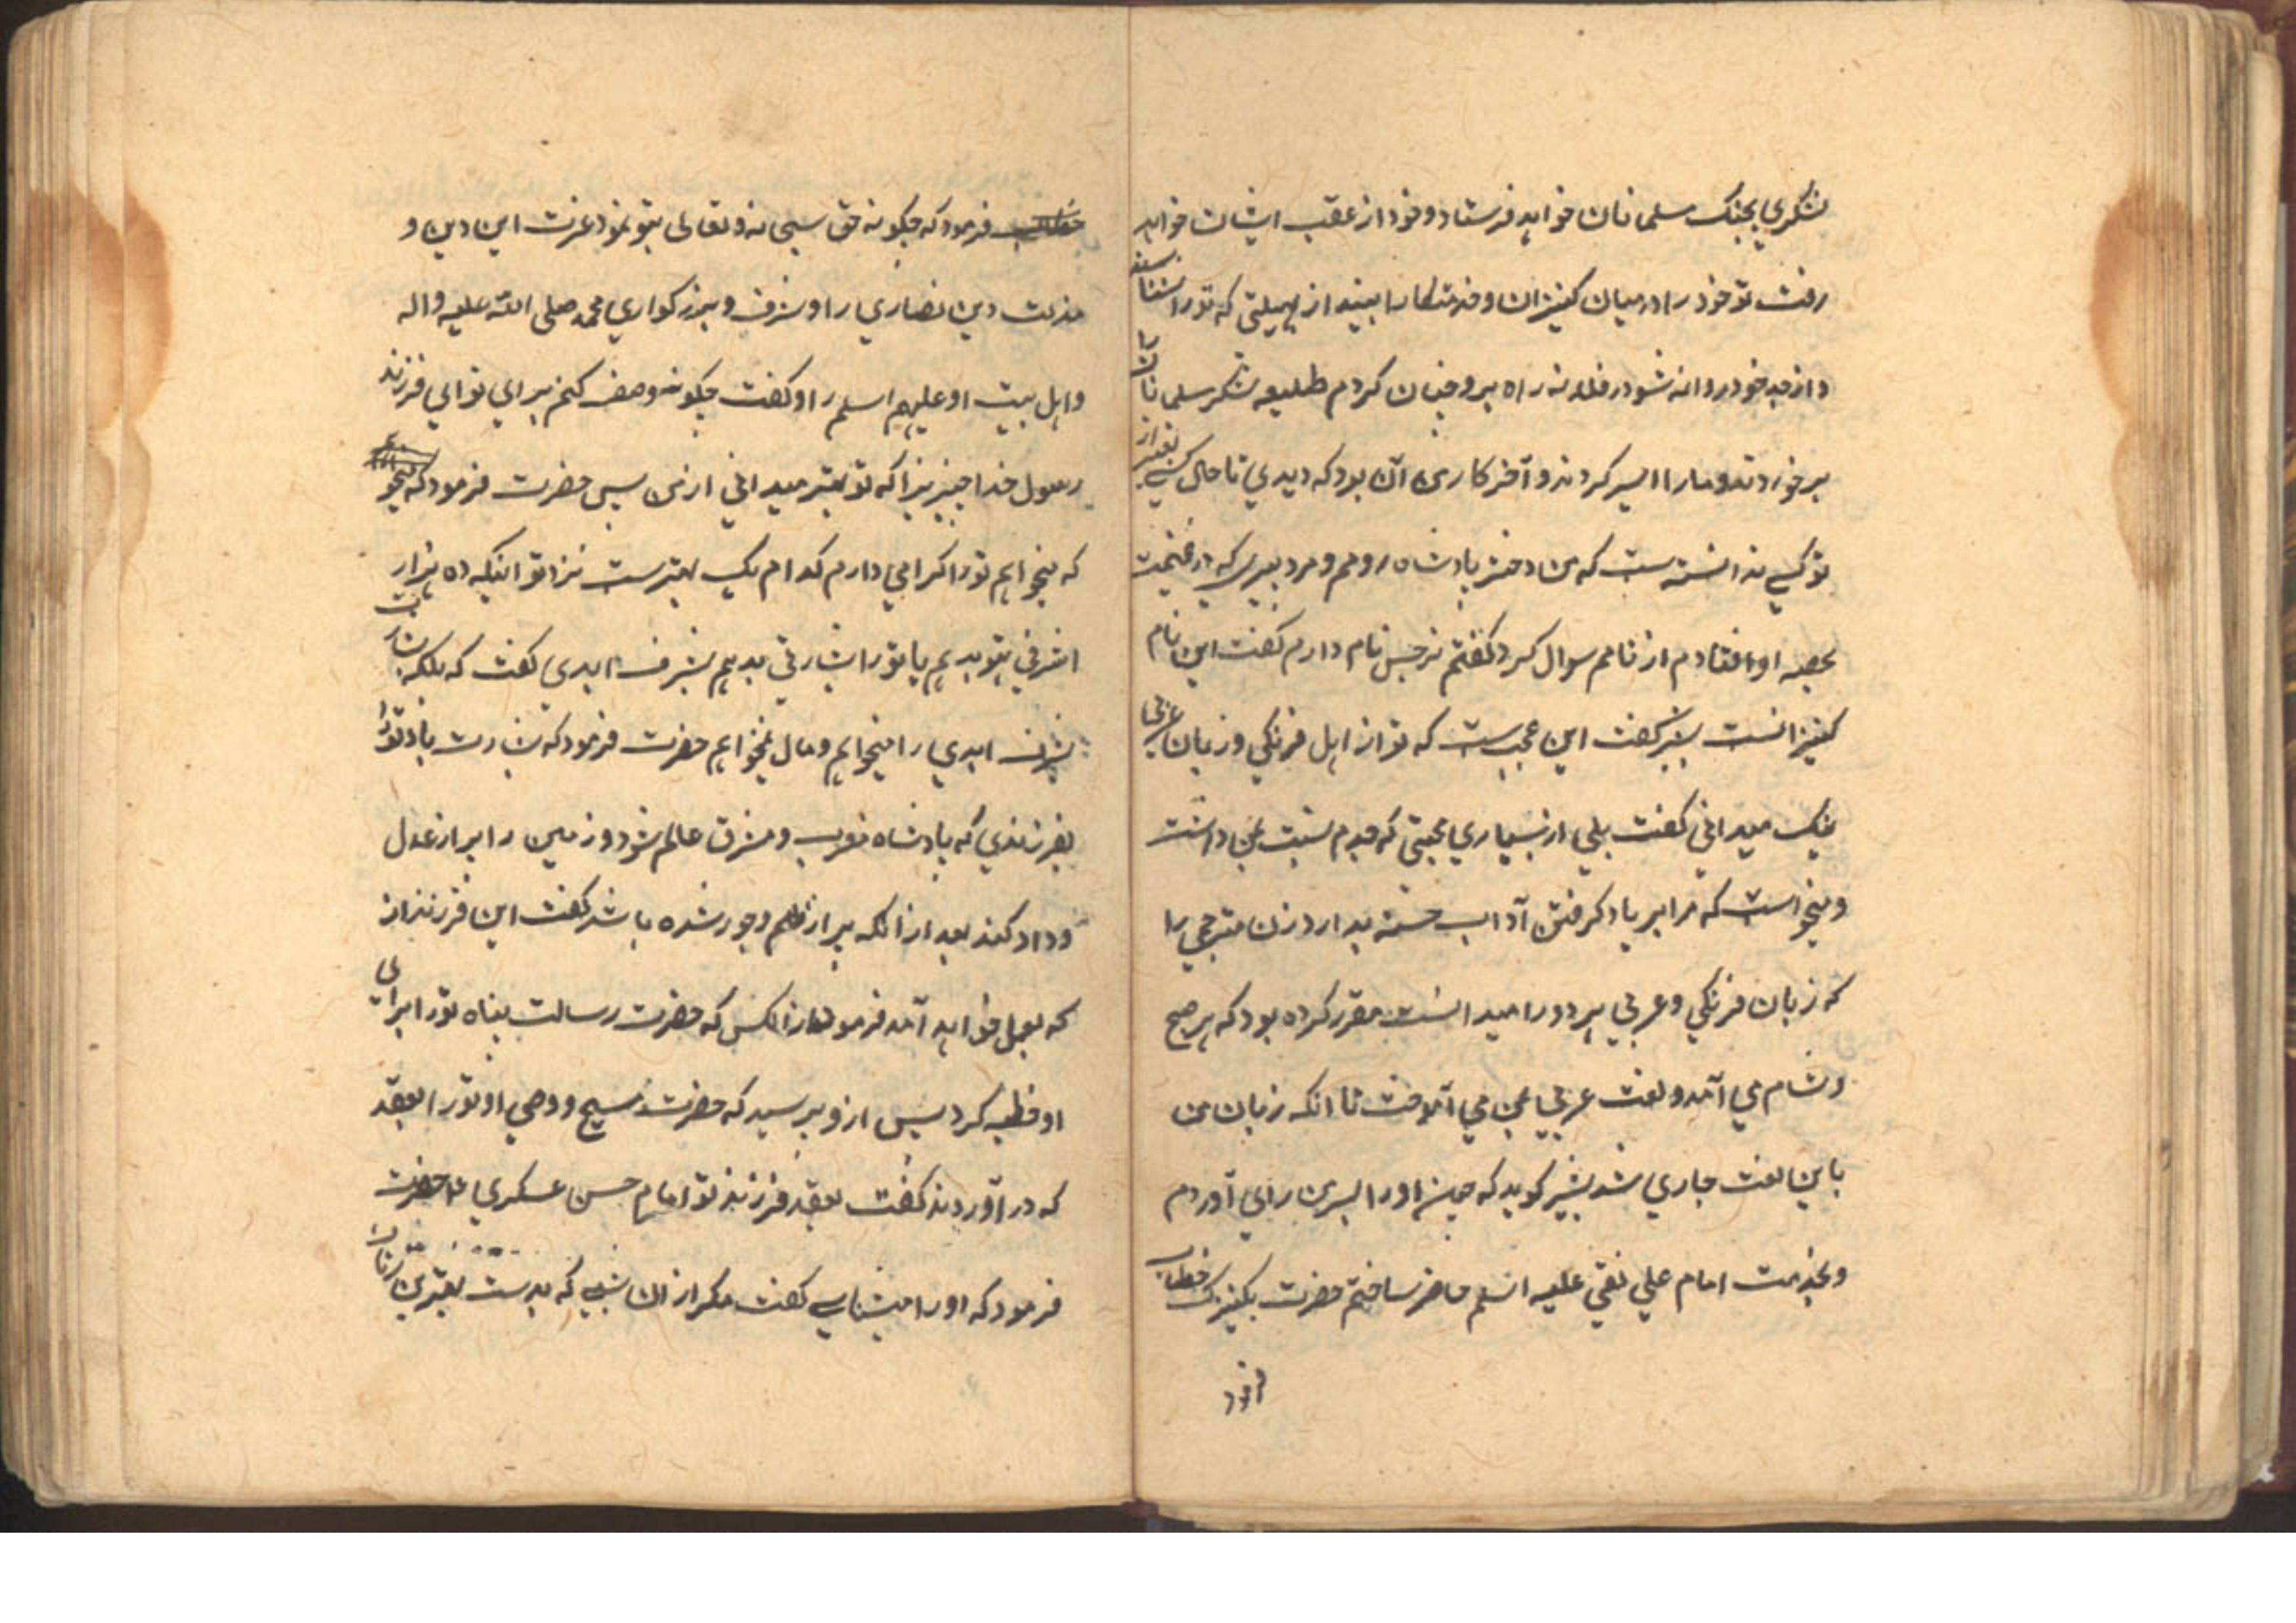 لشکري بجنک مسلمانان خواهد فرستاد و خود از عقب ایشان خواهد
رفت تو خود را در میان کنیزان و خدمتکارا بینداز بهیئتي که تو را نشناسند
و از جد خود روانه شو در فلان راه برو چنان کردم طلیعه لشکر مسلمانان بما
برخوردند و ما را اسیر کردند و آخر کار من آن بود که دیدي تا حال کسي بغیر از
تو کسي ندانسته ست که من دختر پادشاه رومم و مرد پیري که در غنیمت
بحصه او افتادم از نامم سوال کرد گفتم نرجس نام دارم گفت این نام
کنیزانست بشر گفت این عجبست که تو از اهل فرنکي و زبان عربي
نیک میداني گفت بلي از بسیاري محبتي که جدم نسبت بمن داشت
و میخواست که مرا بر یاد گرفتن آداب حسنه بدارد زن مترجمي را
که زبان فرنکي و عربي هر دو را میدانست مقرر کرده بود که هر صبح
و شام مي آمد و لغت عربي بمن مي آموخت تا آنکه زبان من
باین لغت جاري شد بشیر کوید که چون او را بسر من راي آوردم
و بخدمت امام علي نقي علیه السلم حاضر ساختم حضرت بکنیزک خطاب
فرمود
فرمود که چکونه حق سبحانه و تعالی بتو نمود عزت این دین و
مذلت دین نصاري را و شرف و بزرکواري محمد صلی الله علیه و اله
و اهل بیت او علیهم السلم را و گفت چکونه وصف کنم براي تو اي فرزند
رسول خدا چیزیرا که تو بهتر میداني از من پس حضرت فرمود که
که میخواهم تو را کرامي دارم کدام یک بهترست نزد تو اینکه ده هزار
اشرفي بتو بدهم یا تو را بشارتي بدهم بشرف ابدي گفت که بلکه بشارت
بشرف ابدي را میخواهم و مال نمیخواهم حضرت فرمود که بشارت باد تو را
بفرزندي که پادشاه مغرب و مشرق عالم شود و زمین را پر از عدل
و داد کند بعد از آنکه پر از ظلم و جور شده باشد گفت این فرزند از
که بعمل خواهد آمد فرمود از آنکس که حضرت رسالت پناه تو را براي
او خطبه کرد پس از و پرسید که حضرت مسیح و وصي او تو را بعقد
که در آوردند گفت بعقد فرزند تو امام حسن عسکري ع حضرت
فرمود که او را میشناسي گفت مکر از آن شبي که بدست بهترین زنان